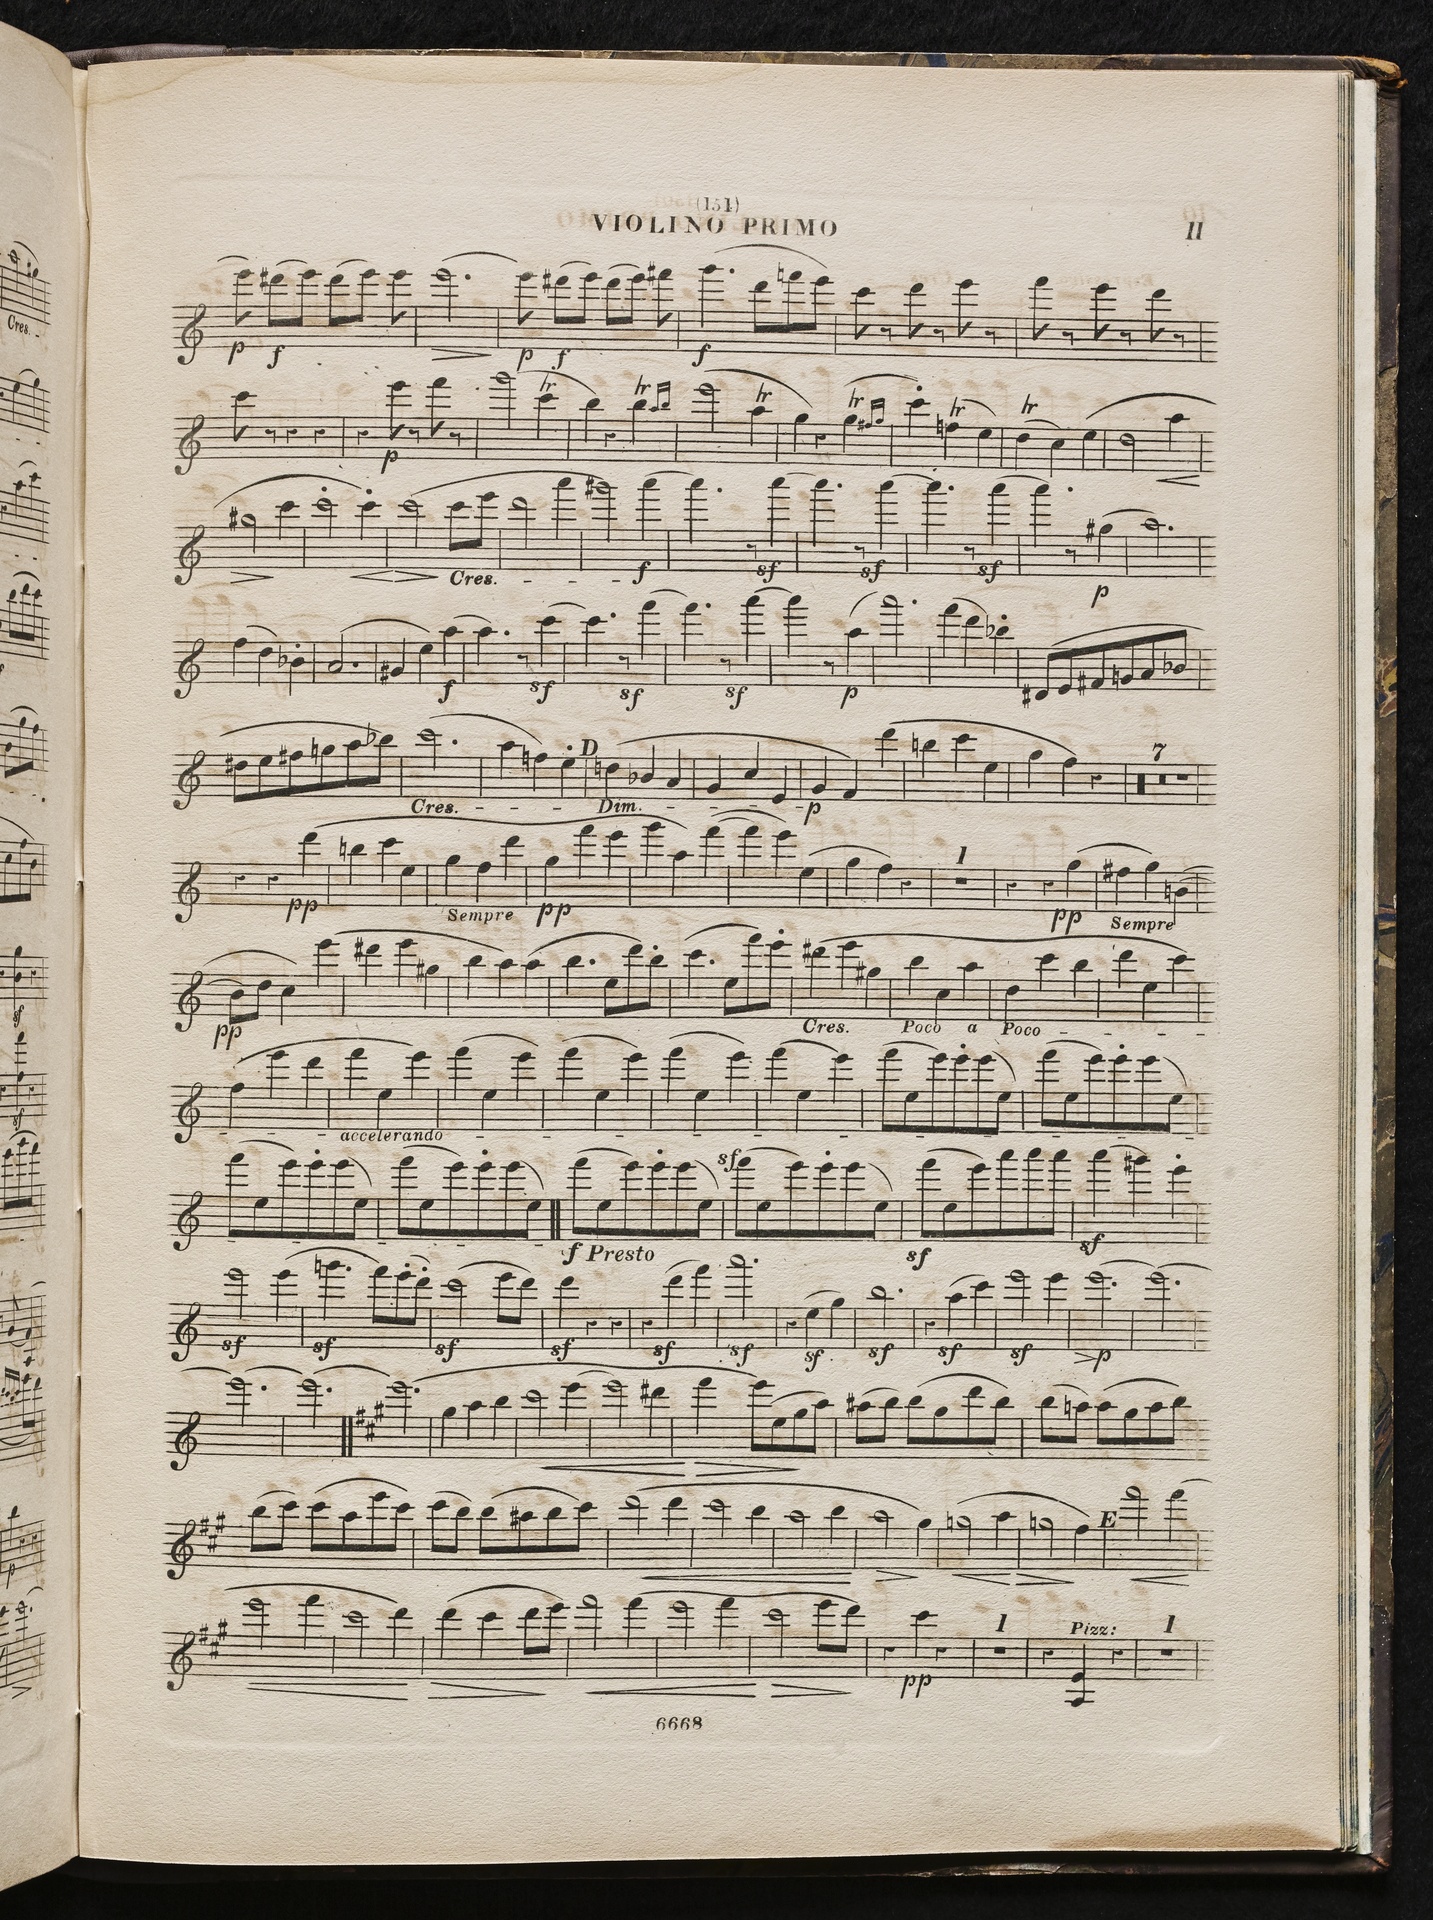 (151)
VIOLINO PRIMO
11
Cres.
p f p f f
p tr tr tr tr tr tr
Cres. f sf sf sf p
f sf sf sf p
D 7
Cres. Dim. p
1
pp Sempre pp pp Sempre
pp Cres. Poco a Poco
accelerando
sf
f Presto sf sf
sf sf sf sf sf sf sf sf sf sf p
E
1 Pizz: 1
pp
6668